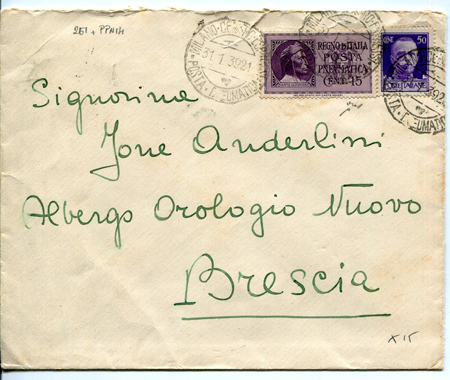 251 + PPN14
MILANO-CENTRO
31.1 3921
POSTA PNEUMATICA
REGNO D'ITALIA
POSTA
PNEUMATICA
CENT. 15
50
POSTE ITALIANE
Signorina
Ione Anderlini
Albergo Orologio Nuovo
Brescia
X 15